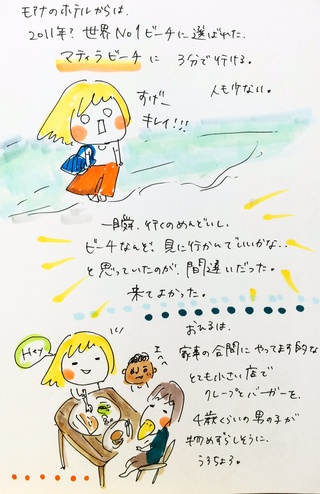 モアナのホテルからは、
2011年? 世界No1ビーチに選ばれた、
マティラビーチに 3分で行ける。
人も少ない。
すげー
キレイ!!!
一瞬、行くのめんどいし、
ビーチなんぞ、見に行かんでいいかな、、
と思っていたのが、間違いだった。
来てよかった。
Hey
お昼は、
家事の合間に やってます的な
とても小さい店で
クレープとバーガーを。
4歳くらいの男の子が
物めずらしそうに、
うろちょろ。